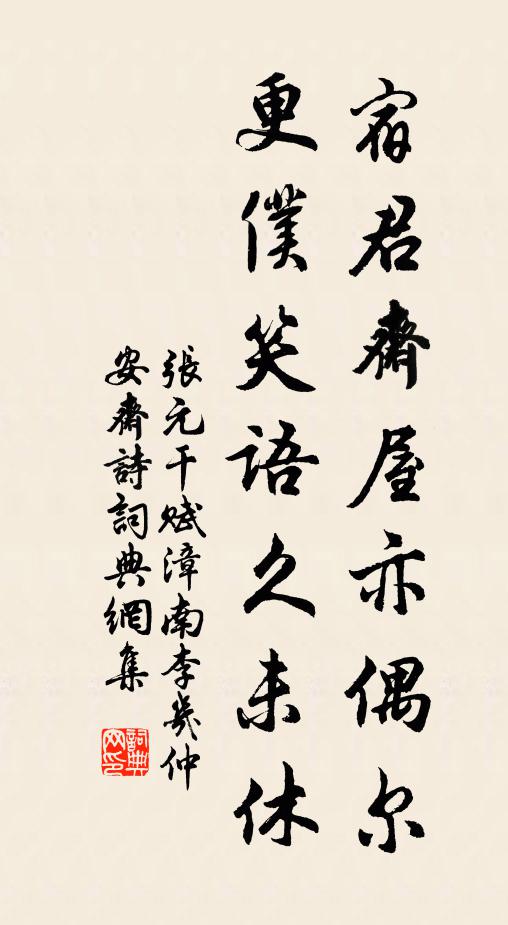 宿君齋屋亦偶尔
更僕笑語久未休
張元干賦漳南李幾仲
安齋詩詞典網集
詞典網印